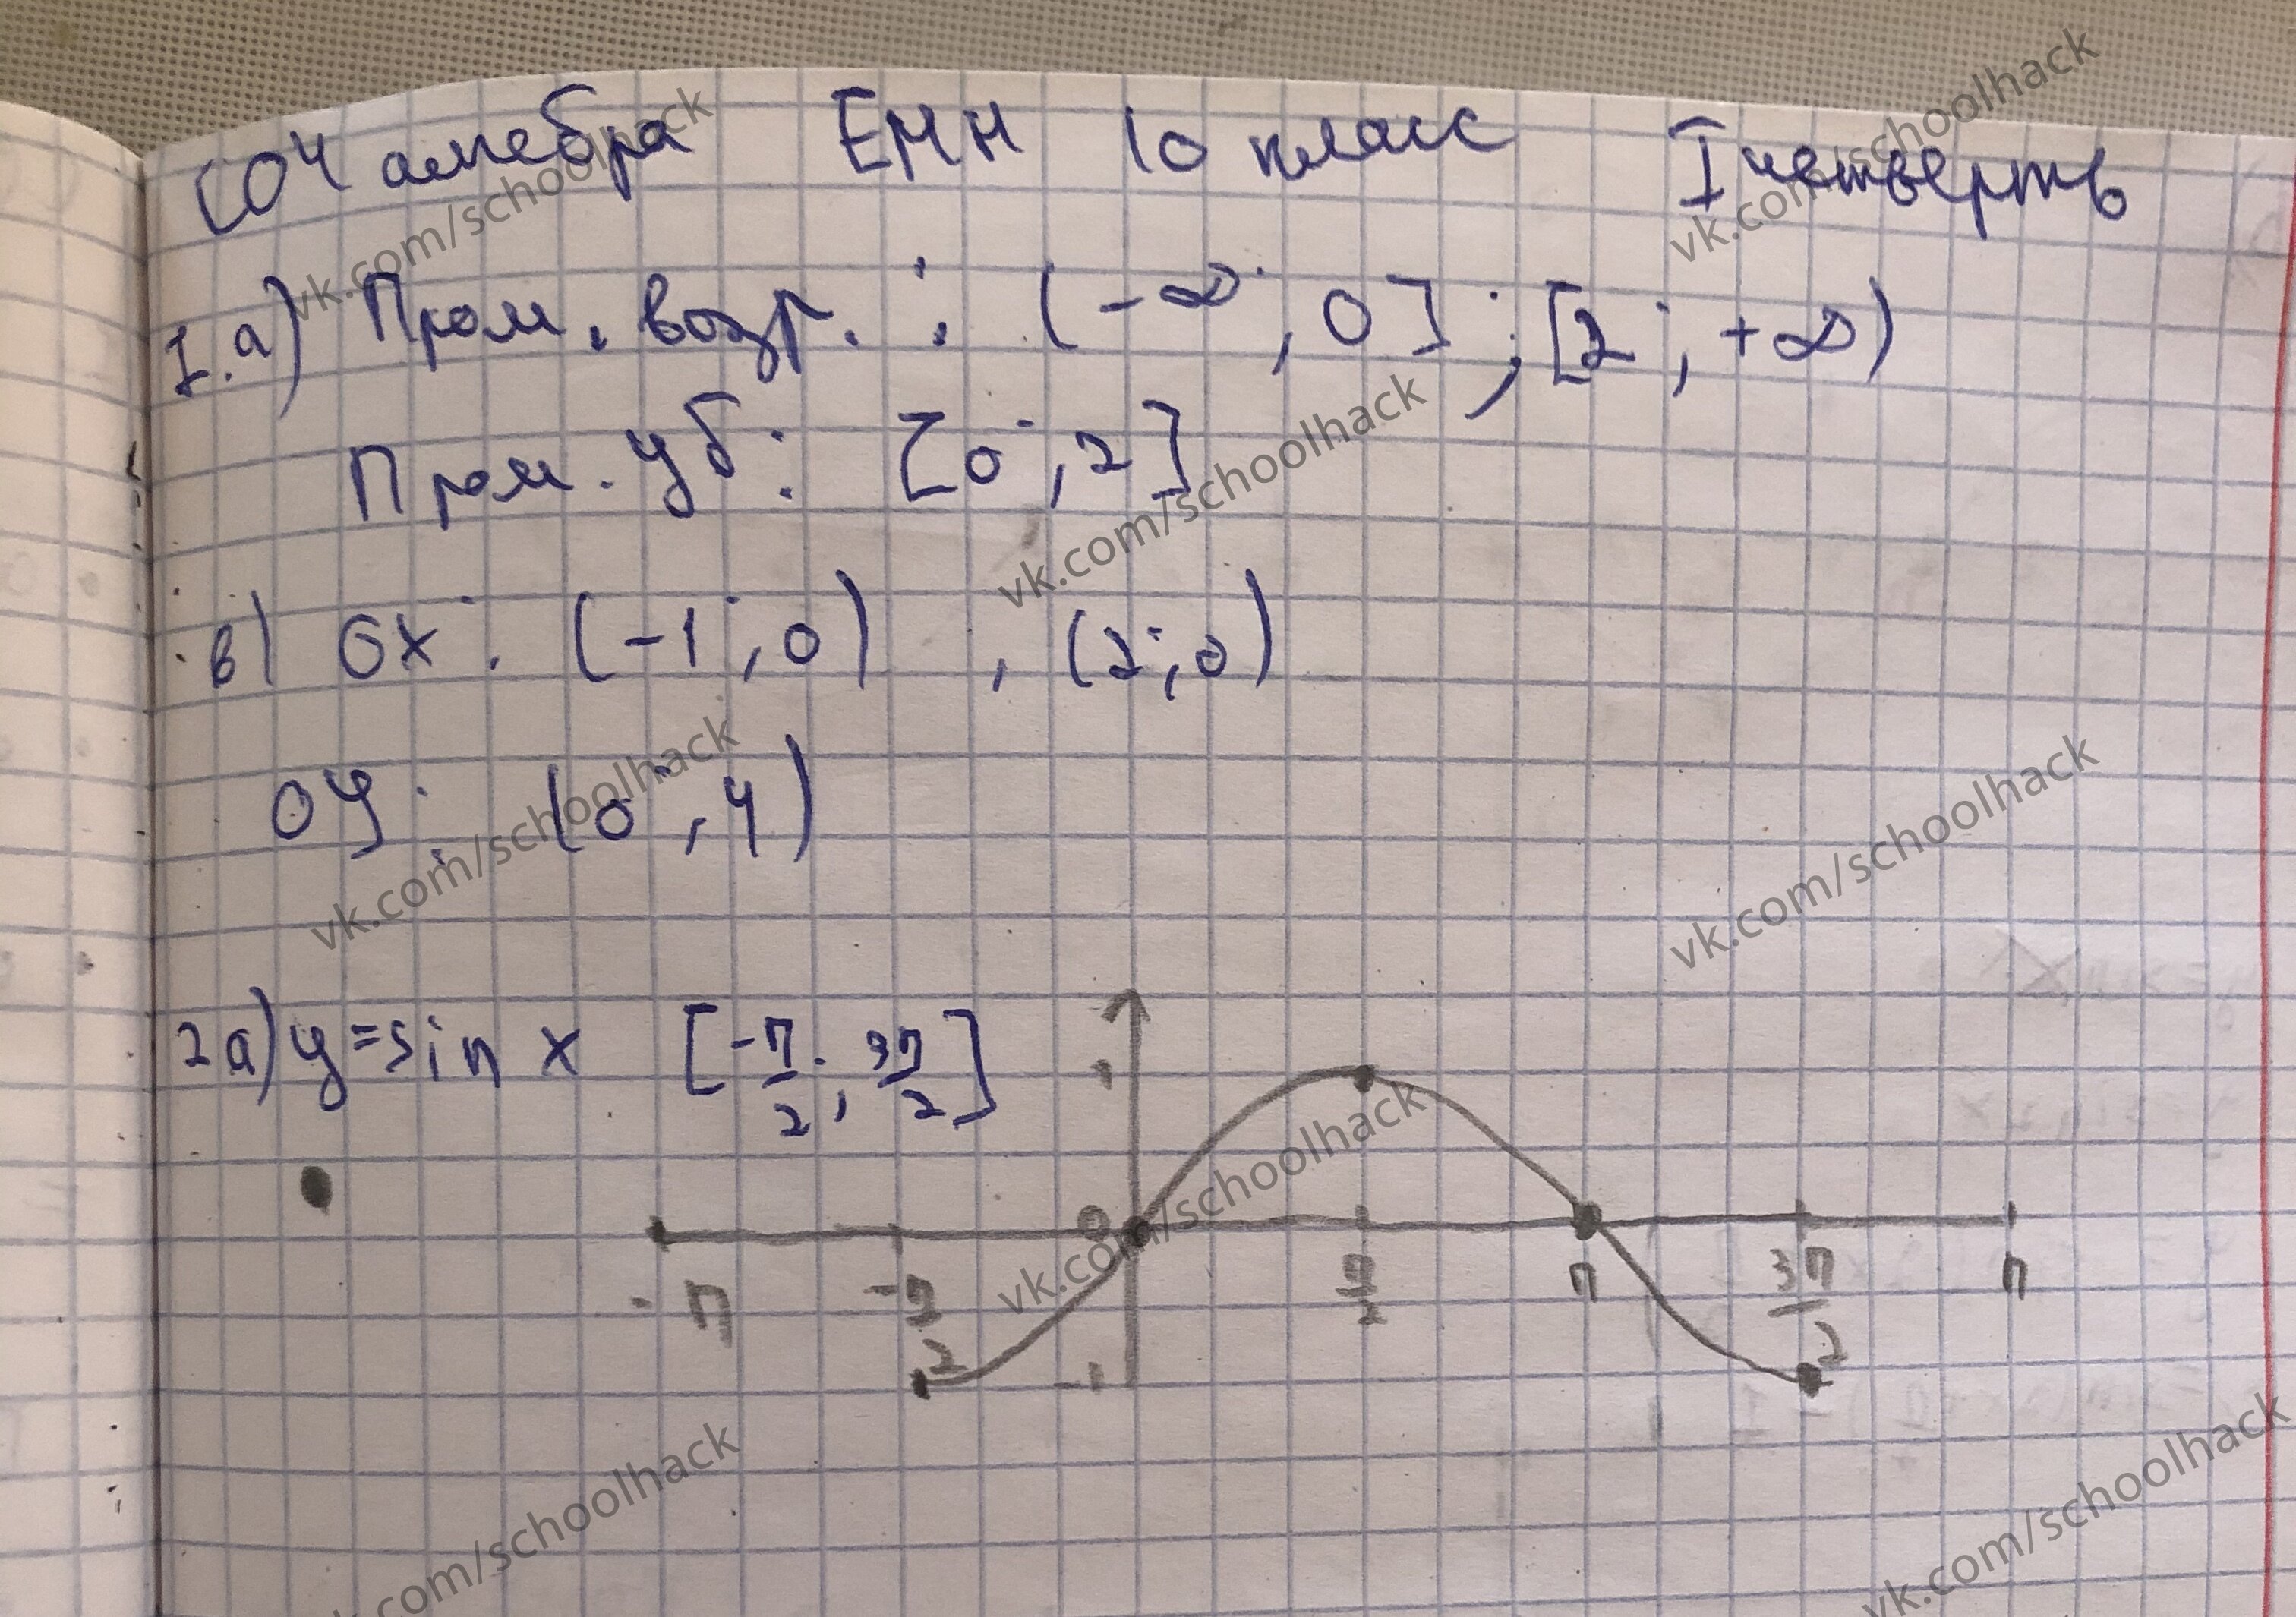 СОЧ алгебра ЕМН 10 класс I четверть
1.а) Пром. возр. : (-∞ ; 0] ; [2 ; +∞)
Пром. уб : [0 ; 2]
в) OX : (-1 ; 0) , (2 ; 0)
OY : (0 ; 4)
2а) y = sin x [-π/2 ; 3π/2]
1
0
-π -π/2 π/2 π 3π/2 π
-1
vk.com/schoolhack
vk.com/schoolhack
vk.com/schoolhack
vk.com/schoolhack
vk.com/schoolhack
vk.com/schoolhack
vk.com/schoolhack
vk.com/schoolhack